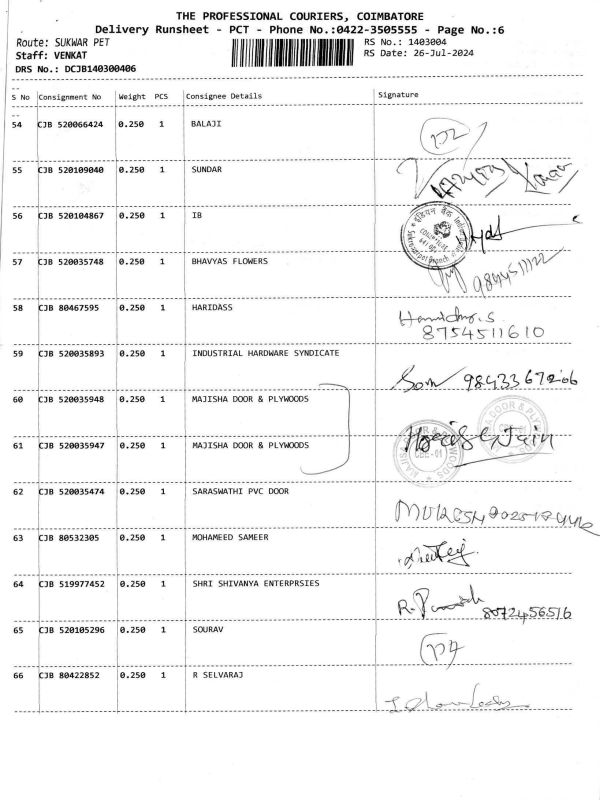 THE PROFESSIONAL COURIERS, COIMBATORE
Delivery Runsheet - PCT - Phone No.:0422-3505555 - Page No.:6
Route: SUKWAR PET RS No.: 1403004
Staff: VENKAT RS Date: 26-Jul-2024
DRS No.: DCJB140300406
S No Consignment No Weight PCS Consignee Details Signature
54 CJB 520066424 0.250 1 BALAJI
55 CJB 520109040 0.250 1 SUNDAR
56 CJB 520104867 0.250 1 IB
57 CJB 520035748 0.250 1 BHAVYAS FLOWERS
58 CJB 80467595 0.250 1 HARIDASS
8754511610
59 CJB 520035893 0.250 1 INDUSTRIAL HARDWARE SYNDICATE
60 CJB 520035948 0.250 1 MAJISHA DOOR & PLYWOODS
61 CJB 520035947 0.250 1 MAJISHA DOOR & PLYWOODS
MAJISHA DOOR & PLYWOODS
CBE-01
62 CJB 520035474 0.250 1 SARASWATHI PVC DOOR
63 CJB 80532305 0.250 1 MOHAMEED SAMEER
64 CJB 519977452 0.250 1 SHRI SHIVANYA ENTERPRSIES
8072456516
65 CJB 520105296 0.250 1 SOURAV
66 CJB 80422852 0.250 1 R SELVARAJ